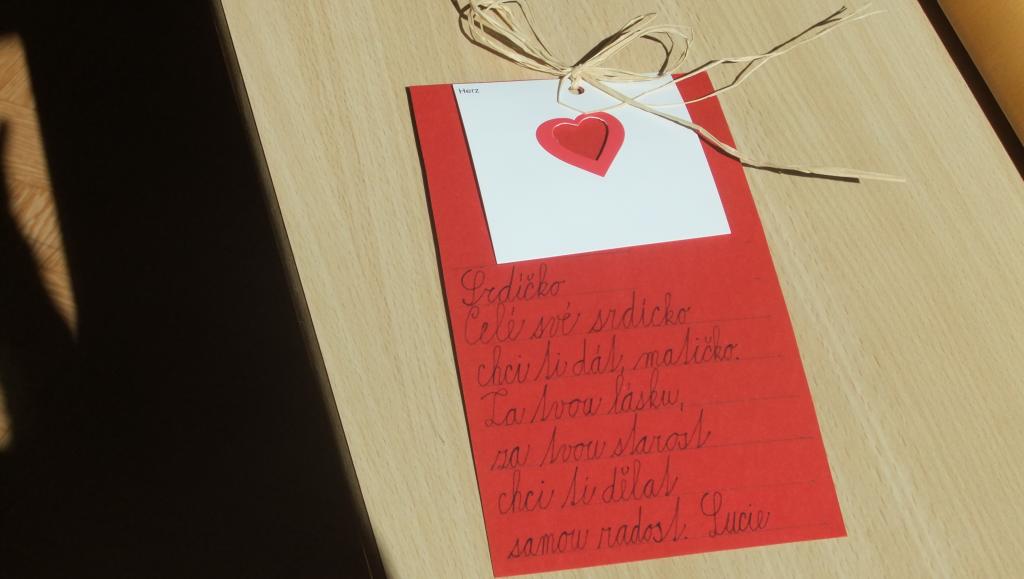 Herz
Srdíčko
Celé své srdíčko
chci ti dát, matičko.
Za tvou lásku,
za tvou starost
chci ti dělat
samou radost. Lucie